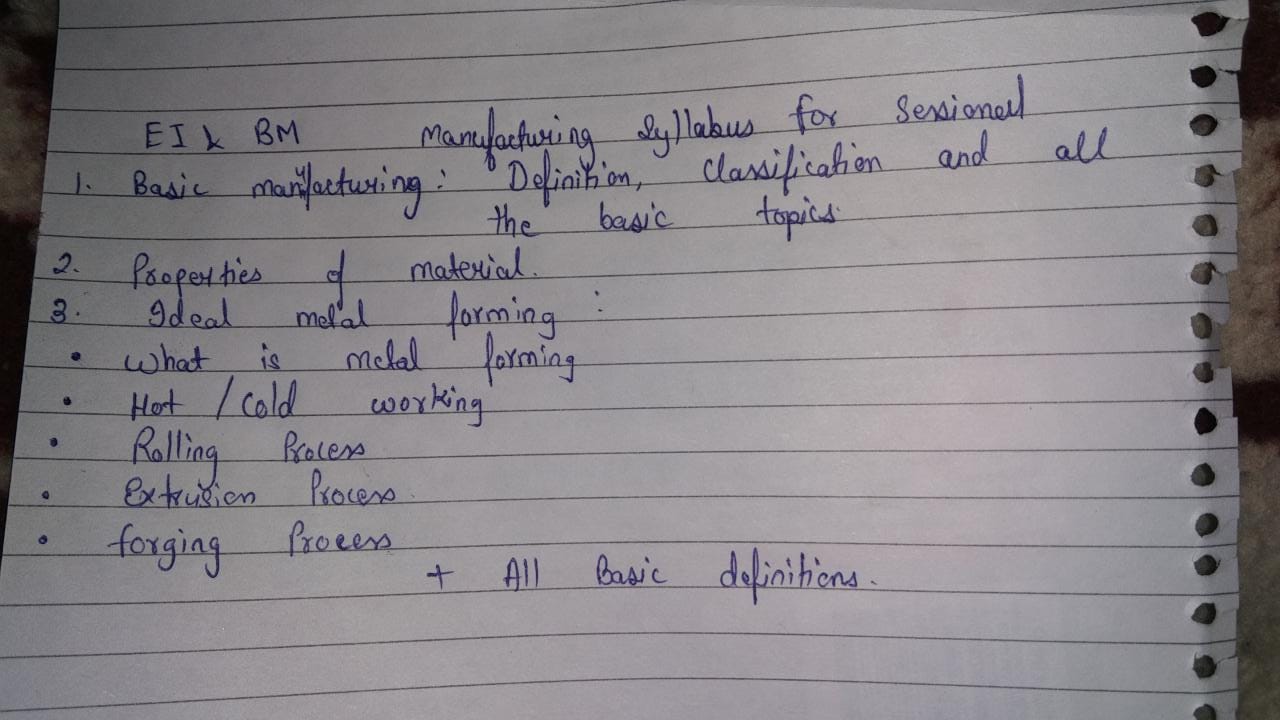 EI & BM Manufacturing Syllabus for Sessional
1. Basic manufacturing: Definition, Classification and all
the basic topics.
2. Properties of material.
3. Ideal metal forming :
• What is metal forming
• Hot / Cold working
• Rolling Process
• Extrusion Process
• forging Process
+ All Basic definitions.